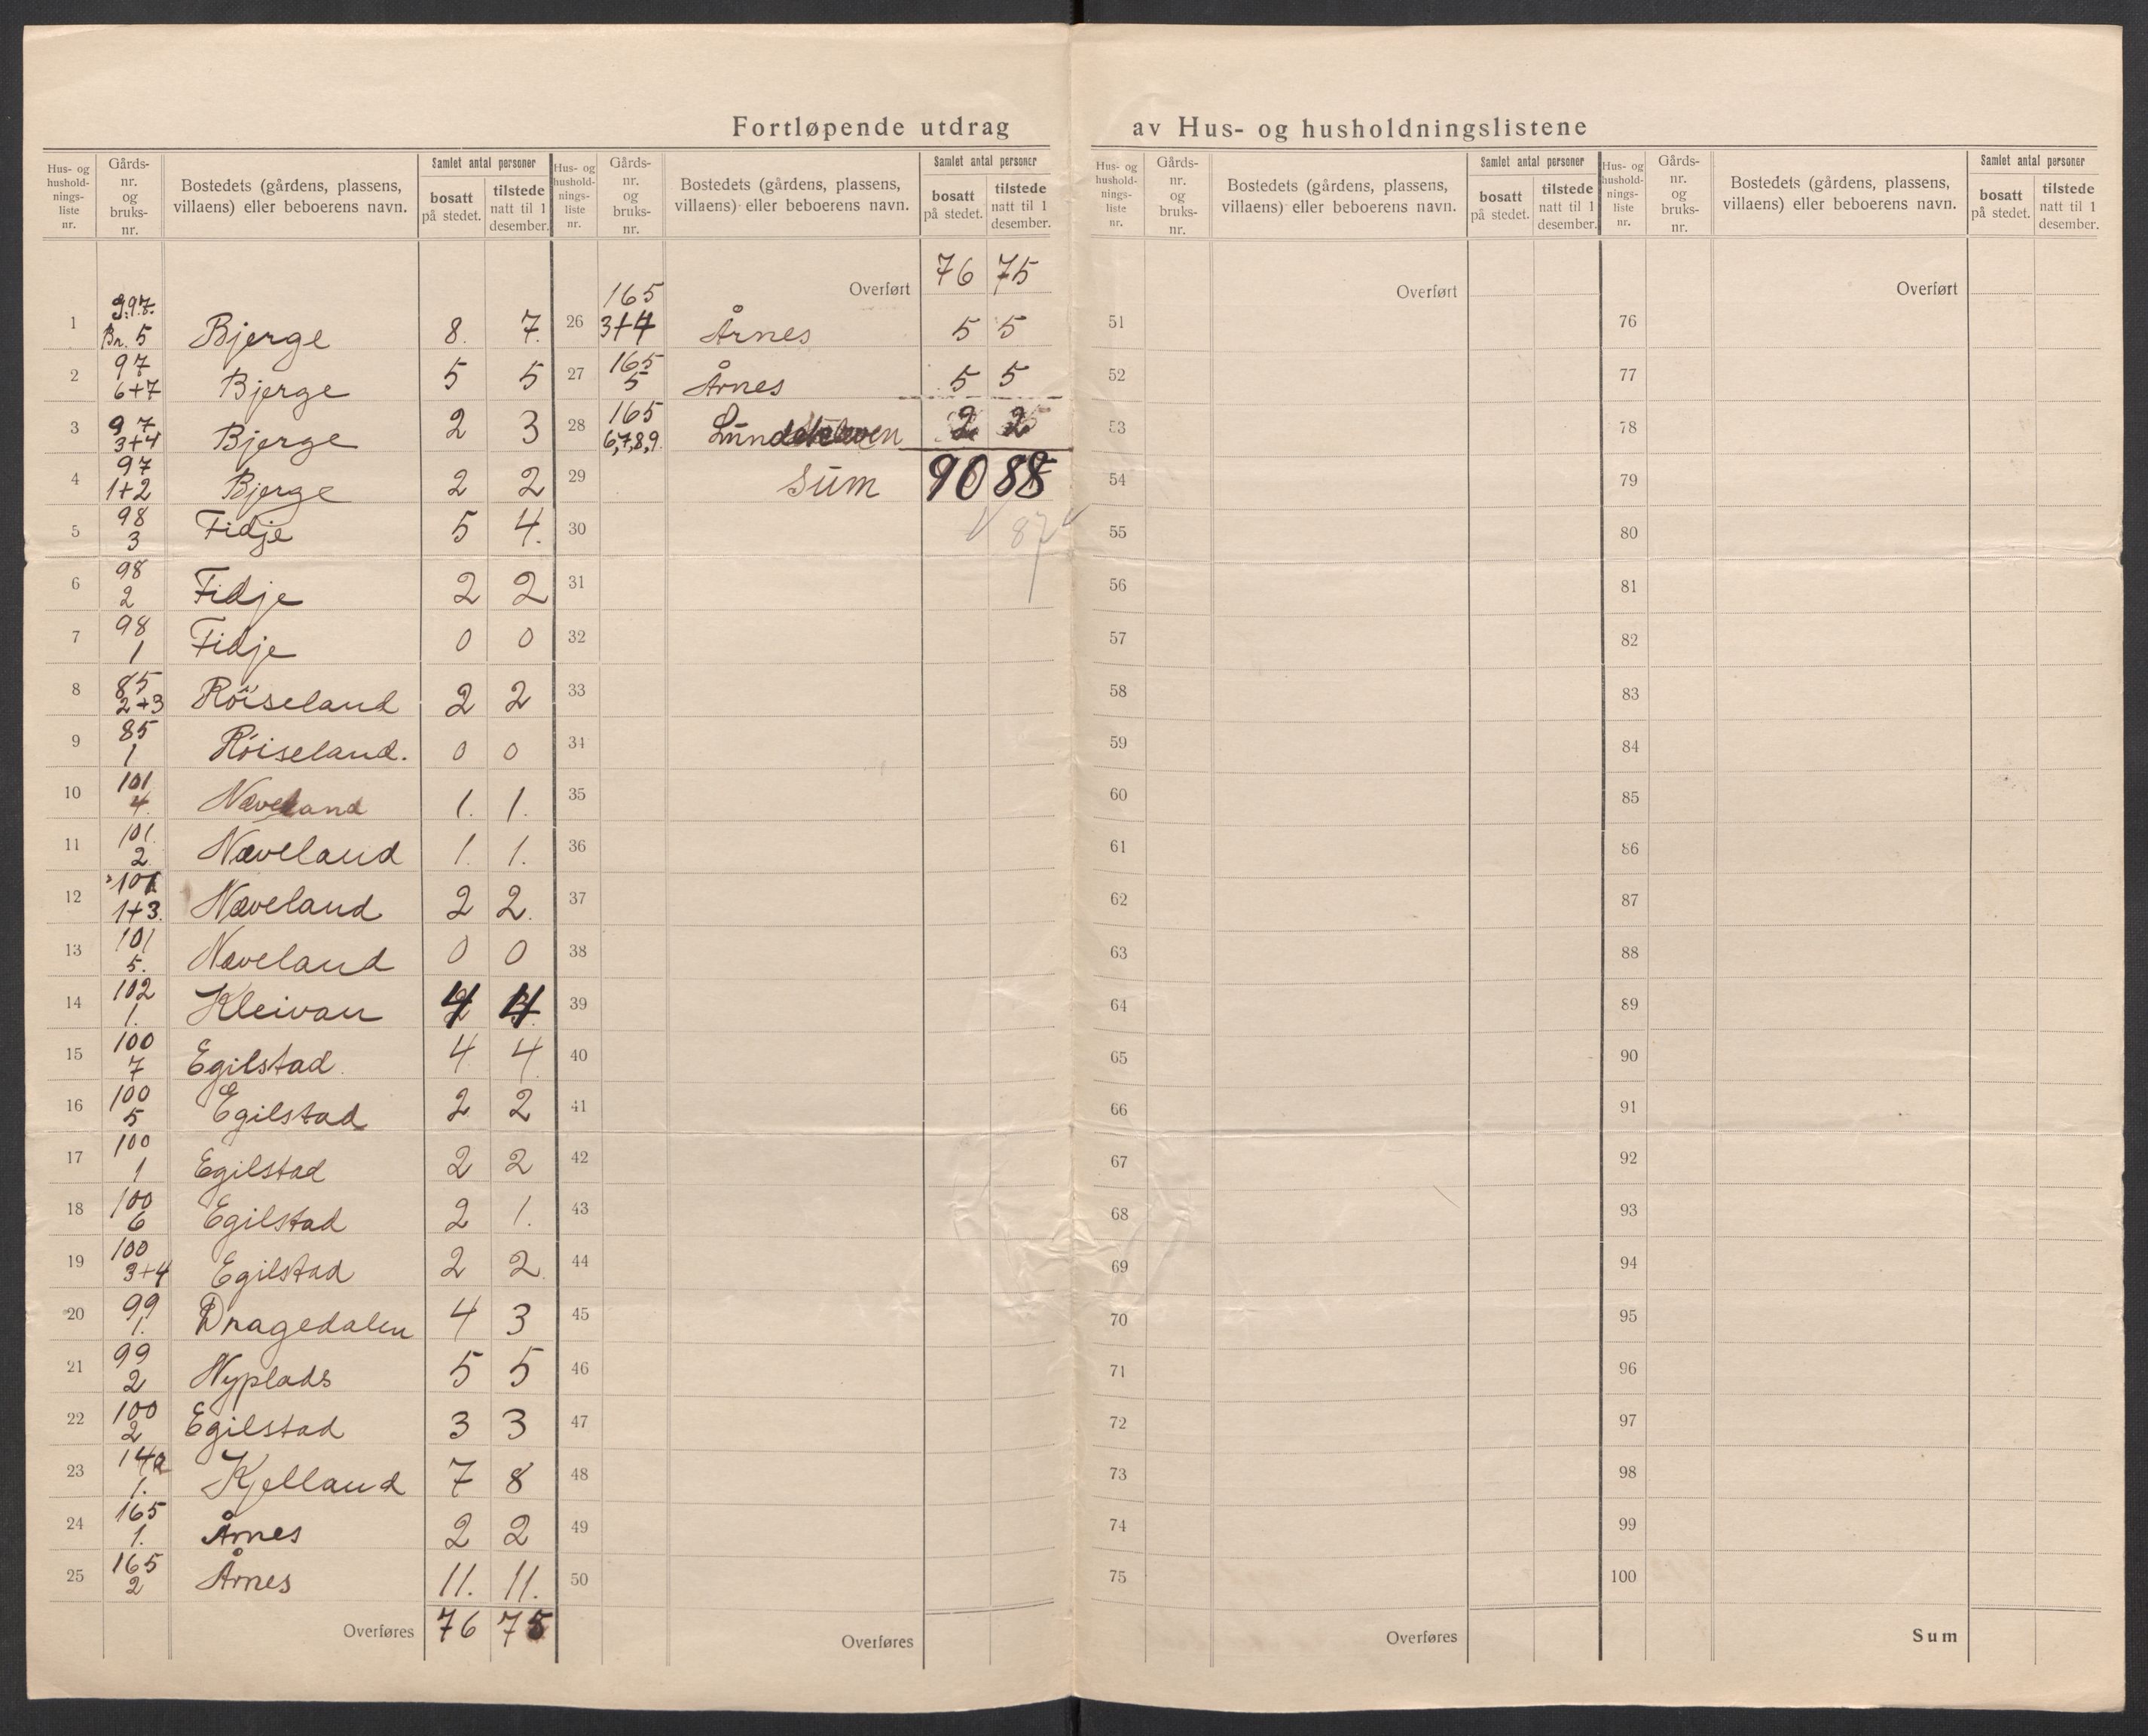 Fortløpende utdrag av Hus- og husholdningslistene
Hus- og hushold-nings-liste nr. | Gårds-nr. og bruks-nr. | Bostedets (gårdens, plassens, villaens) eller beboerens navn. | Samlet antal personer | bosatt på stedet. | tilstede natt til 1 desember.
1 | g. 97. Br. 5 | Bjerge | 8. | 7.
2 | 97 6+7 | Bjerge | 5 | 5
3 | 97 3+4 | Bjerge | 2 | 3
4 | 97 1+2 | Bjerge | 2 | 2
5 | 98 3 | Fidje | 5 | 4.
6 | 98 2 | Fidje | 2 | 2
7 | 98 1 | Fidje | 0 | 0
8 | 85 2+3 | Röiseland | 2 | 2
9 | 85 1 | Röiseland. | 0 | 0
10 | 101 4. | Næveland | 1. | 1.
11 | 101. 2. | Næveland | 1. | 1.
12 | 101 1+3. | Næveland | 2 | 2.
13 | 101 5. | Næveland | 0 | 0
14 | 102 1. | Kleivan | 4 | 4
15 | 100 7 | Egilstad. | 4 | 4
16 | 100 5 | Egilstad | 2 | 2
17 | 100 1 | Egilstad | 2 | 2
18 | 100 6 | Egilstad | 2 | 1.
19 | 100 3+4 | Egilstad | 2 | 2.
20 | 99 1. | Dragedalen | 4 | 3
21 | 99 2 | Nyplads | 5 | 5
22 | 100 2 | Egilstad | 3 | 3
23 | 1. | Kjelland | 7 | 8
24 | 165 1. | Årnes | 2 | 2
25 | 165 2 | Årnes | 11. | 11.
Overføres | 76 | 75
Hus- og hushold-nings-liste nr. | Gårds-nr. og bruks-nr. | Bostedets (gårdens, plassens, villaens) eller beboerens navn. | Samlet antal personer | bosatt på stedet. | tilstede natt til 1 desember.
Overført | 76 | 75
26 | 165 3+4 | Årnes | 5 | 5
27 | 165 5 | Årnes | 5 | 5
28 | 165 6,7,8,9. | 2 | 2
29 | Sum | 90 | 88
30 | 87
31
32
33
34
35
36
37
38
39
40
41
42
43
44
45
46
47
48
49
50
Overføres
Hus- og hushold-nings-liste nr. | Gårds-nr. og bruks-nr. | Bostedets (gårdens, plassens, villaens) eller beboerens navn. | Samlet antal personer | bosatt på stedet. | tilstede natt til 1 desember.
Overført
51
52
53
54
55
56
57
58
59
60
61
62
63
64
65
66
67
68
69
70
71
72
73
74
75
Overføres
Hus- og hushold-nings-liste nr. | Gårds-nr. og bruks-nr. | Bostedets (gårdens, plassens, villaens) eller beboerens navn. | Samlet antal personer | bosatt på stedet. | tilstede natt til 1 desember.
Overført
76
77
78
79
80
81
82
83
84
85
86
87
88
89
90
91
92
93
94
95
96
97
98
99
100
Sum